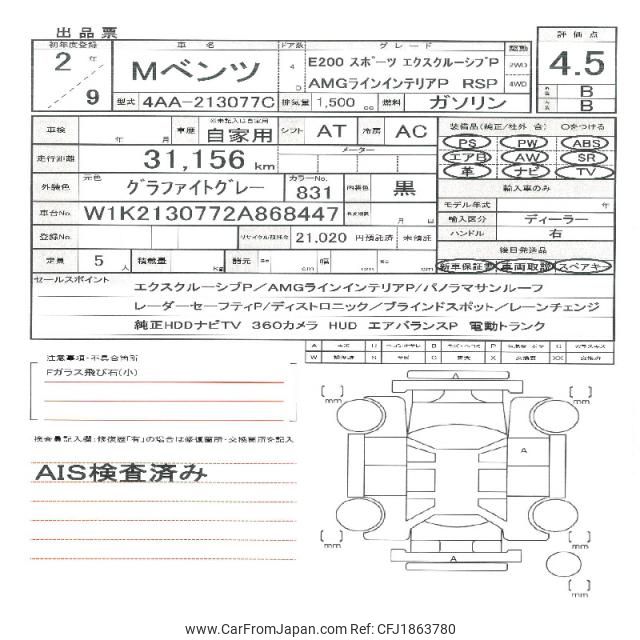 出品票
初年度登録 車名 ドア数 グレード 駆動 評価点
2年 9 Mベンツ 4 D E200 スポーツ エクスクルーシブP 2WD 4WD 4.5
AMGラインインテリアP RSP
B
B
型式 4AA-213077C 排気量 1,500 cc 燃料 ガソリン
車検 年 月 車歴 ※未記入は自家用 自家用 シフト AT 冷房 AC
装備品(純正/社外 含) ○をつける
PS PW ABS
エアB AW SR
革 ナビ TV
走行距離 31,156 km メーター
外装色 元色 グラファイトグレー カラーNo. 831 内装色 黒
輸入車のみ
モデル年式 年
輸入区分 ディーラー
ハンドル 右
車台No. W1K2130772A868447 月 日
登録No. リサイクル預託金 21.020 円預託済 未預託
後日発送品
新車保証書 車両取説 スペアキー
定員 5 人 積載量 Kg 諸元 長 cm 幅 cm 高 cm
セールスポイント
エクスクルーシブP/AMGラインインテリアP/パノラマサンルーフ
レーダーセーフティP/ディストロニック/ブラインドスポット/レーンチェンジ
純正HDDナビTV 360カメラ HUD エアバランスP 電動トランク
A U B P G
W S C X XX
注意事項・不具合箇所
Fガラス飛び石(小)
検査員記入欄:修復歴「有」の場合は修復箇所・交換箇所を記入
AIS検査済み
A
mm mm
A
mm mm
A
mm
www.CarFromJapan.com Ref: CFJ1863780